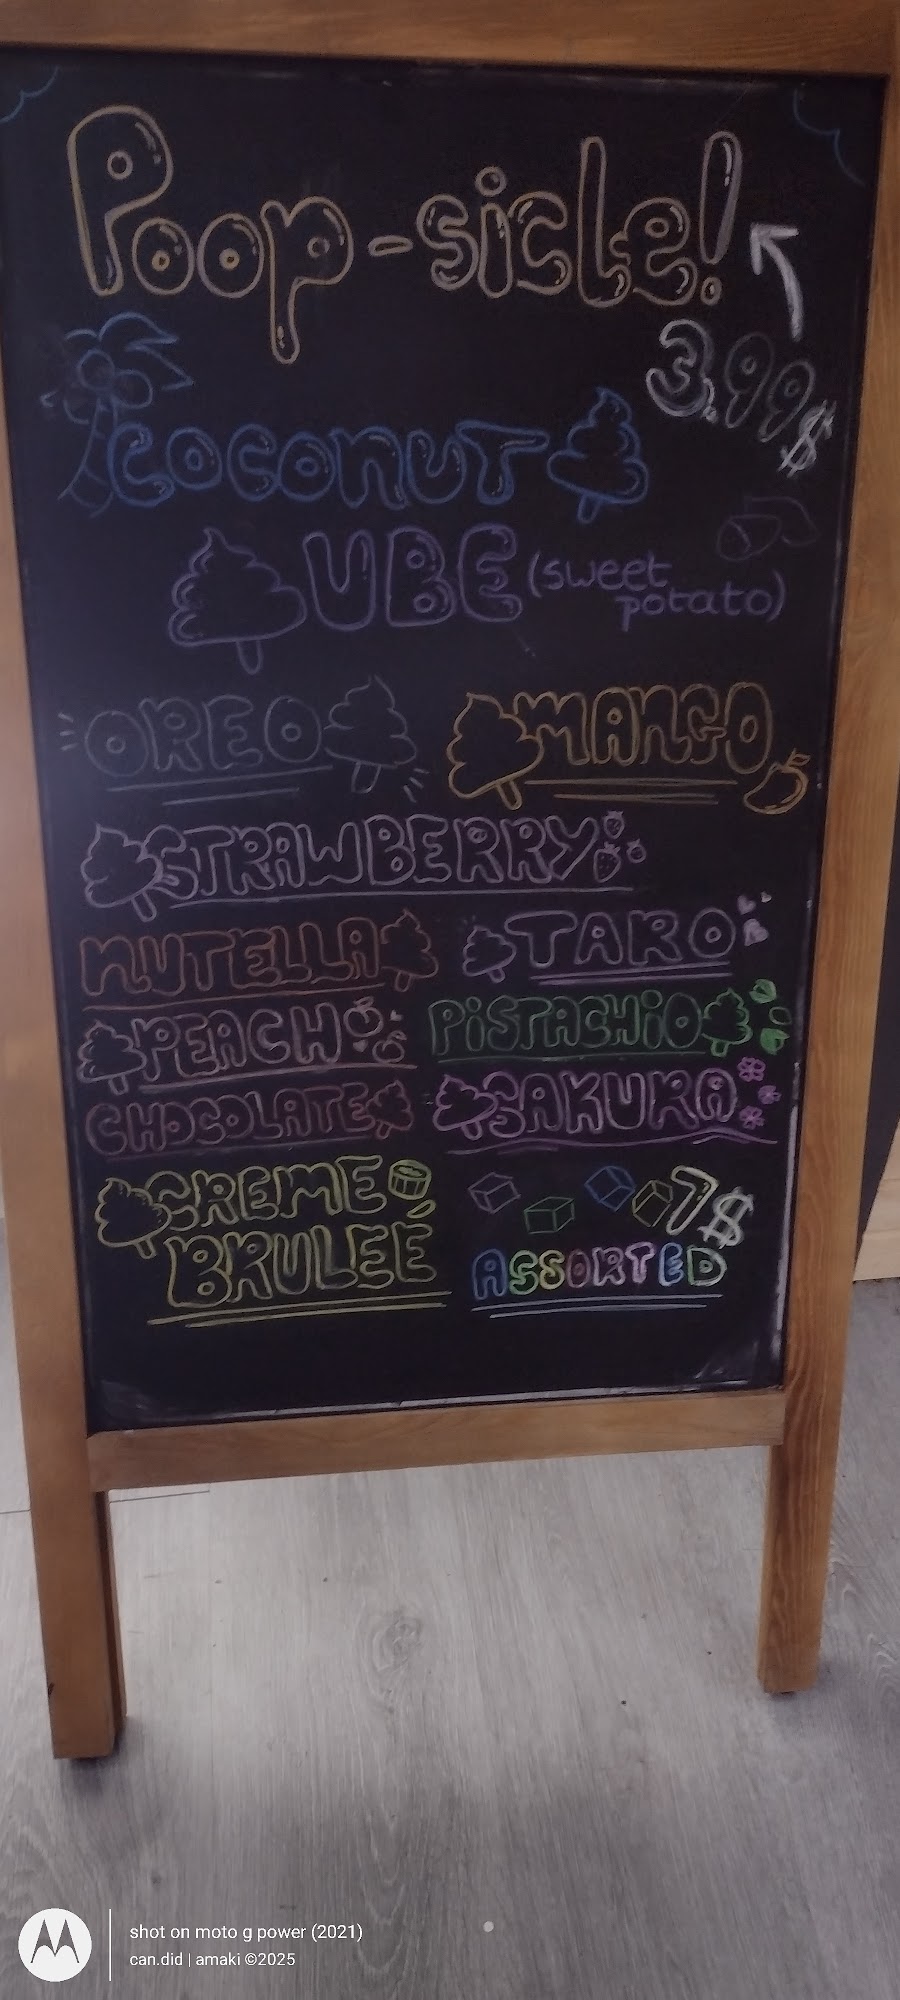 Poop-sicle!
3.99$
COCONUT
UBE (sweet
potato)
OREO
MANGO
STRAWBERRY
NUTELLA
TARO
PEACH
PiSTACHiO
CHOCOLATE
SAKURA
CREME
BRULEÉ
7$
ASSORTED
shot on moto g power (2021)
can.did | amaki ©2025